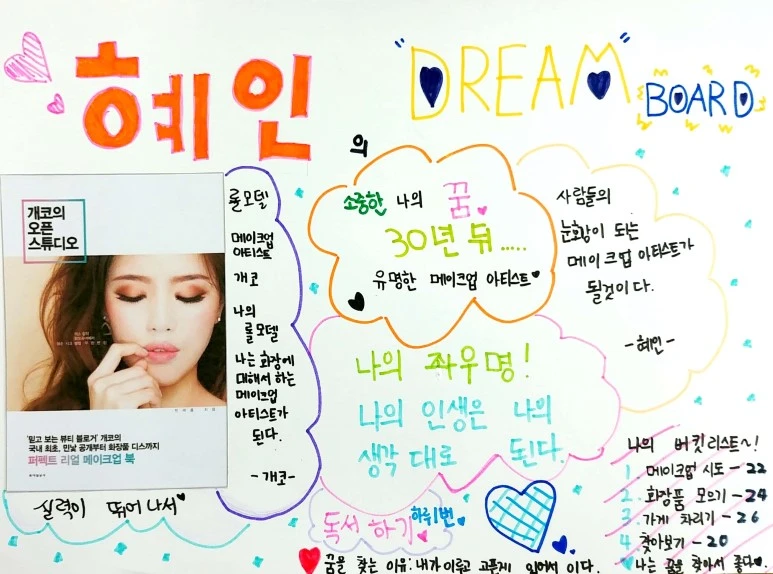 혜인
의
"DREAM"
BOARD
개코의
오픈
스튜디오
'믿고 보는 뷰티 블로거' 개코의
국내 최초, 민낯 공개부터 화장품 디스까지
퍼펙트 리얼 메이크업 북
롤모델
메이크업
아티스트
개코
나의
롤모델
나는 화장에
대해서 하는
메이크업
아티스트가
된다.
-개코-
실력이 뛰어 나서
소중한 나의 꿈
30년 뒤.....
유명한 메이크업 아티스트
사람들의
눈황이 되는
메이크업 아티스트가
될것이다.
-혜인-
나의 좌우명!
나의 인생은 나의
생각 대로 된다.
독서 하기 하루1번
나의 버킷리스트~!
1. 메이크업 시도-22
2. 화장품 모으기-24
3. 가게 차리기-26
4. 찾아보기-20
나는 꿈을 찾아서 좋다.
꿈을 찾는 이유: 내가 이루고 고픈게 있어서 이다.